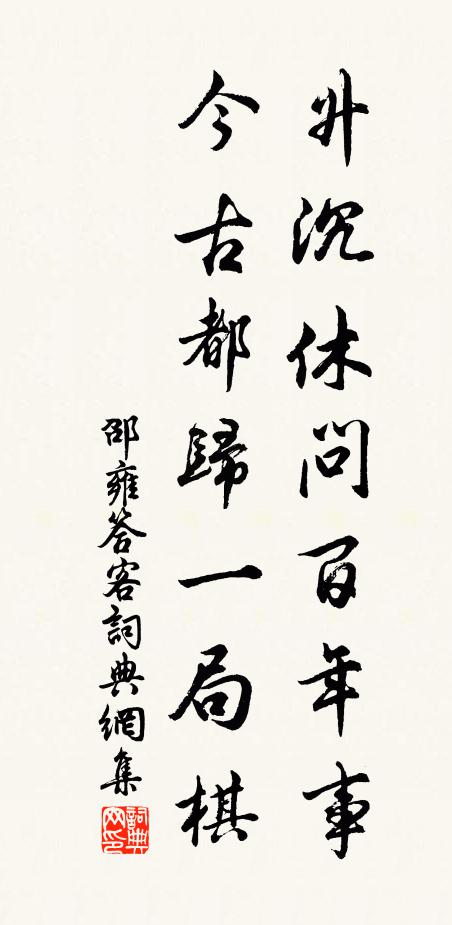 升沉休問百年事
今古都歸一局棋
邵雍答客詞典網集
詞典
网印